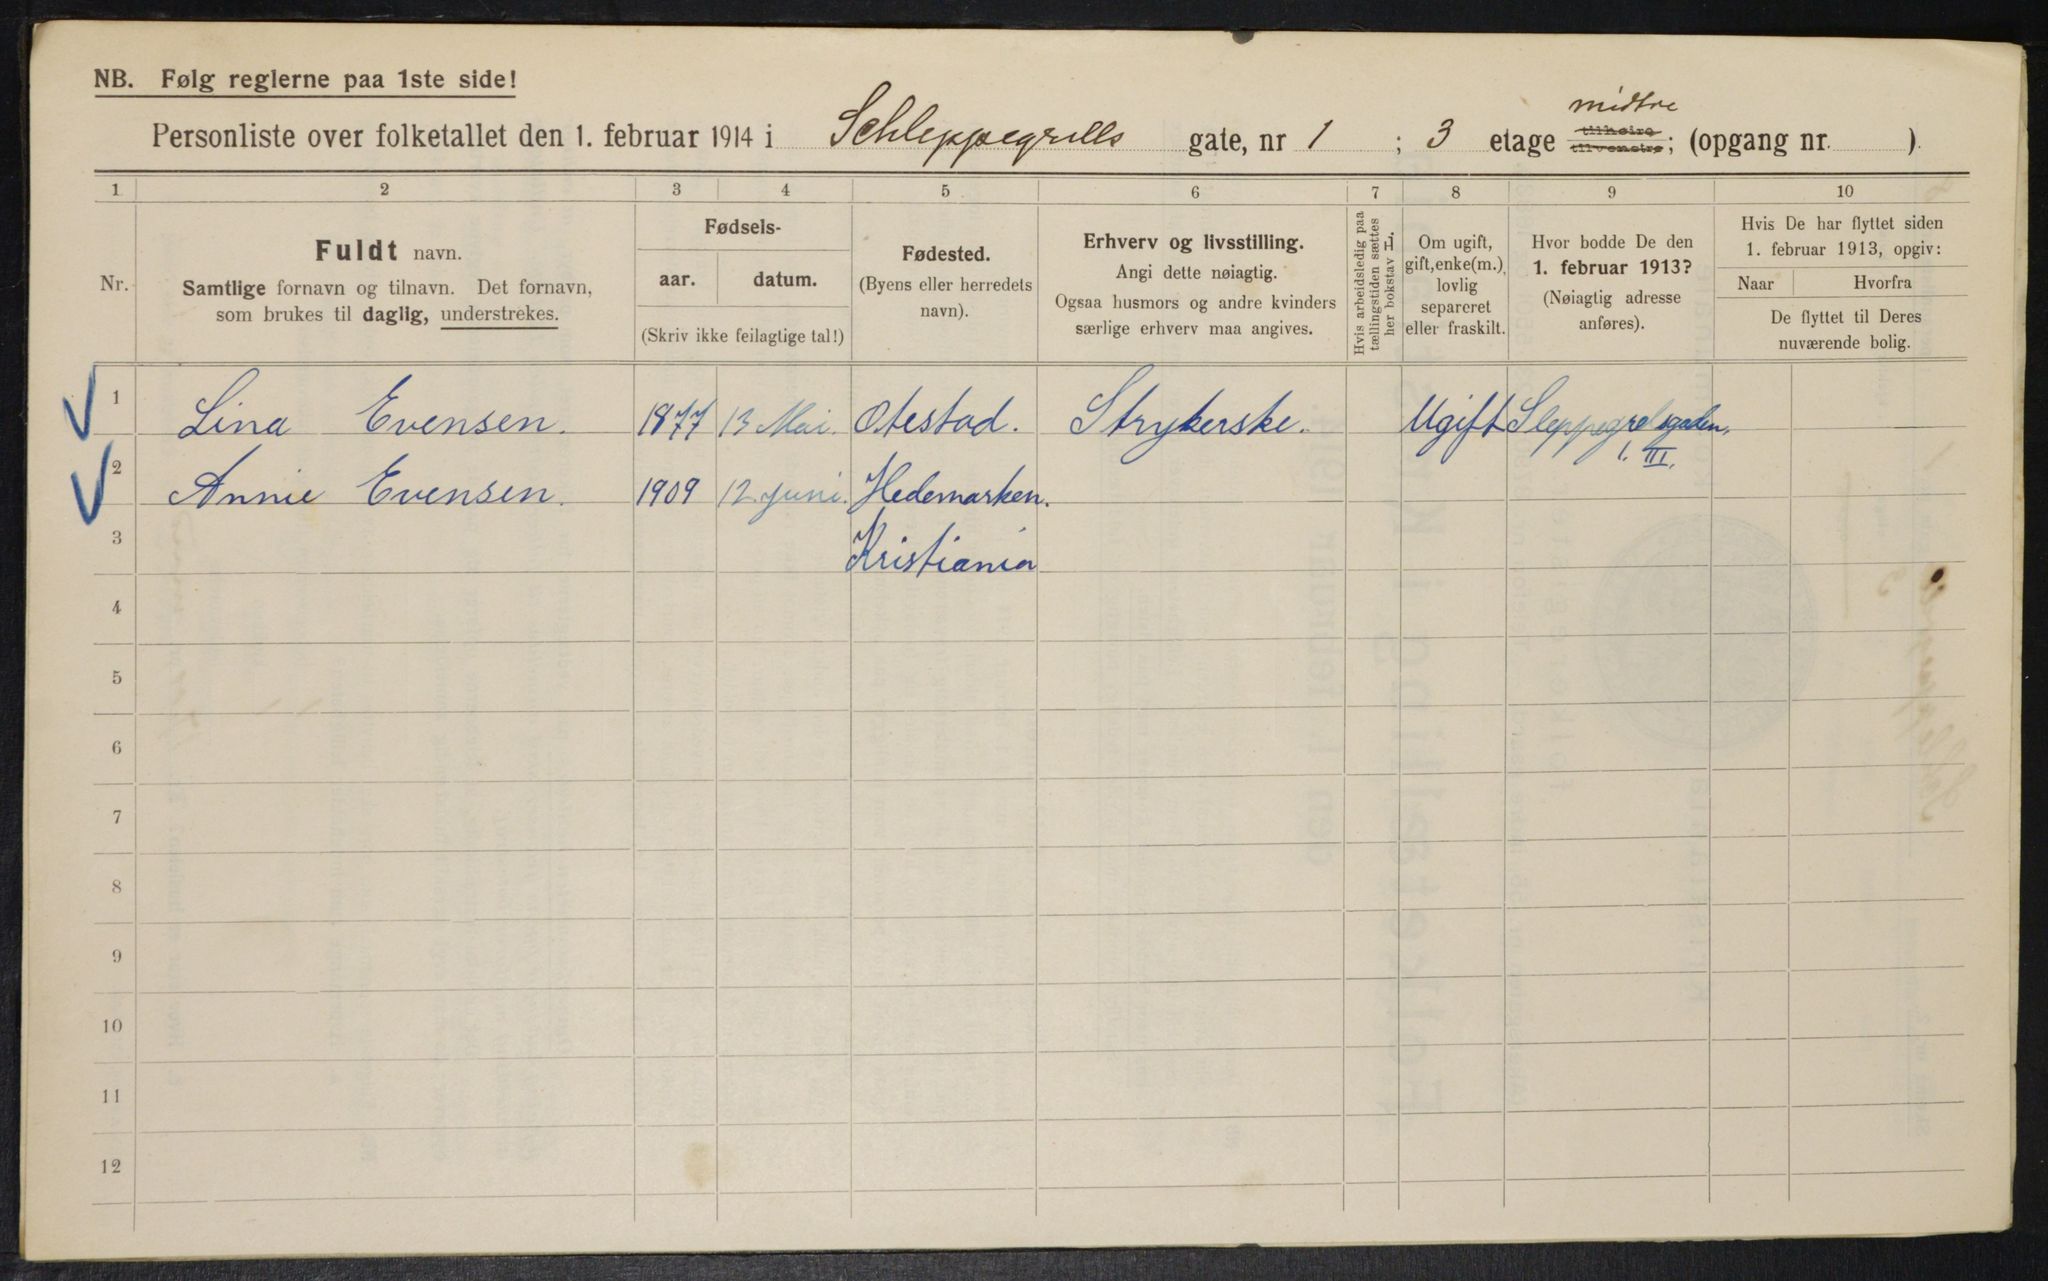 NB. Følg reglerne paa 1ste side!
Personliste over folketallet den 1. februar 1914 i Schleppegrells gate, nr 1 ; 3 etage midtre tilhøire tilvenstre; (opgang nr. ).
1 2 3 4 5 6 7 8 9 10
Nr.
Fuldt navn.
Samtlige fornavn og tilnavn. Det fornavn,
som brukes til daglig, understrekes.
Fødsels-
aar. datum.
(Skriv ikke feilagtige tal!)
Fødested.
(Byens eller herredets
navn).
Erhverv og livsstilling.
Angi dette nøiagtig.
Ogsaa husmors og andre kvinders
særlige erhverv maa angives.
Hvis arbeidsledig paa
tællingstiden sættes
her bokstav L.
Om ugift,
gift, enke(m.),
lovlig
separeret
eller fraskilt.
Hvor bodde De den
1. februar 1913?
(Nøiagtig adresse
anføres).
Hvis De har flyttet siden
1. februar 1913, opgiv:
Naar Hvorfra
De flyttet til Deres
nuværende bolig.
1 Lina Evensen. 1877 13 Mai. Otestad. Strykerske. Ugift Sleppegrelsgaden,
1. III.
2 Annie Evensen. 1909 12 juni. Hedemarken.
3 Kristiania
4
5
6
7
8
9
10
11
12